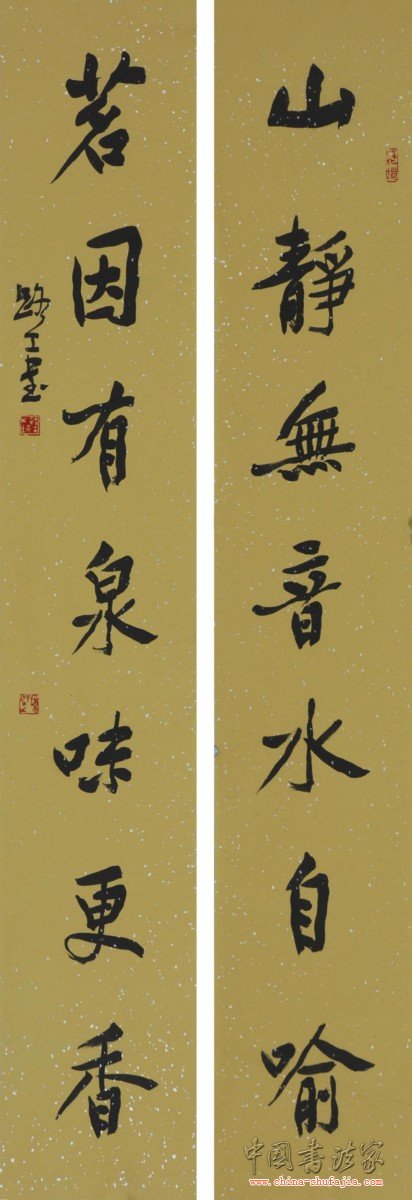 山靜無音水自喻
茗因有泉味更香
路工書
中国书法家
www.china-shufajia.com